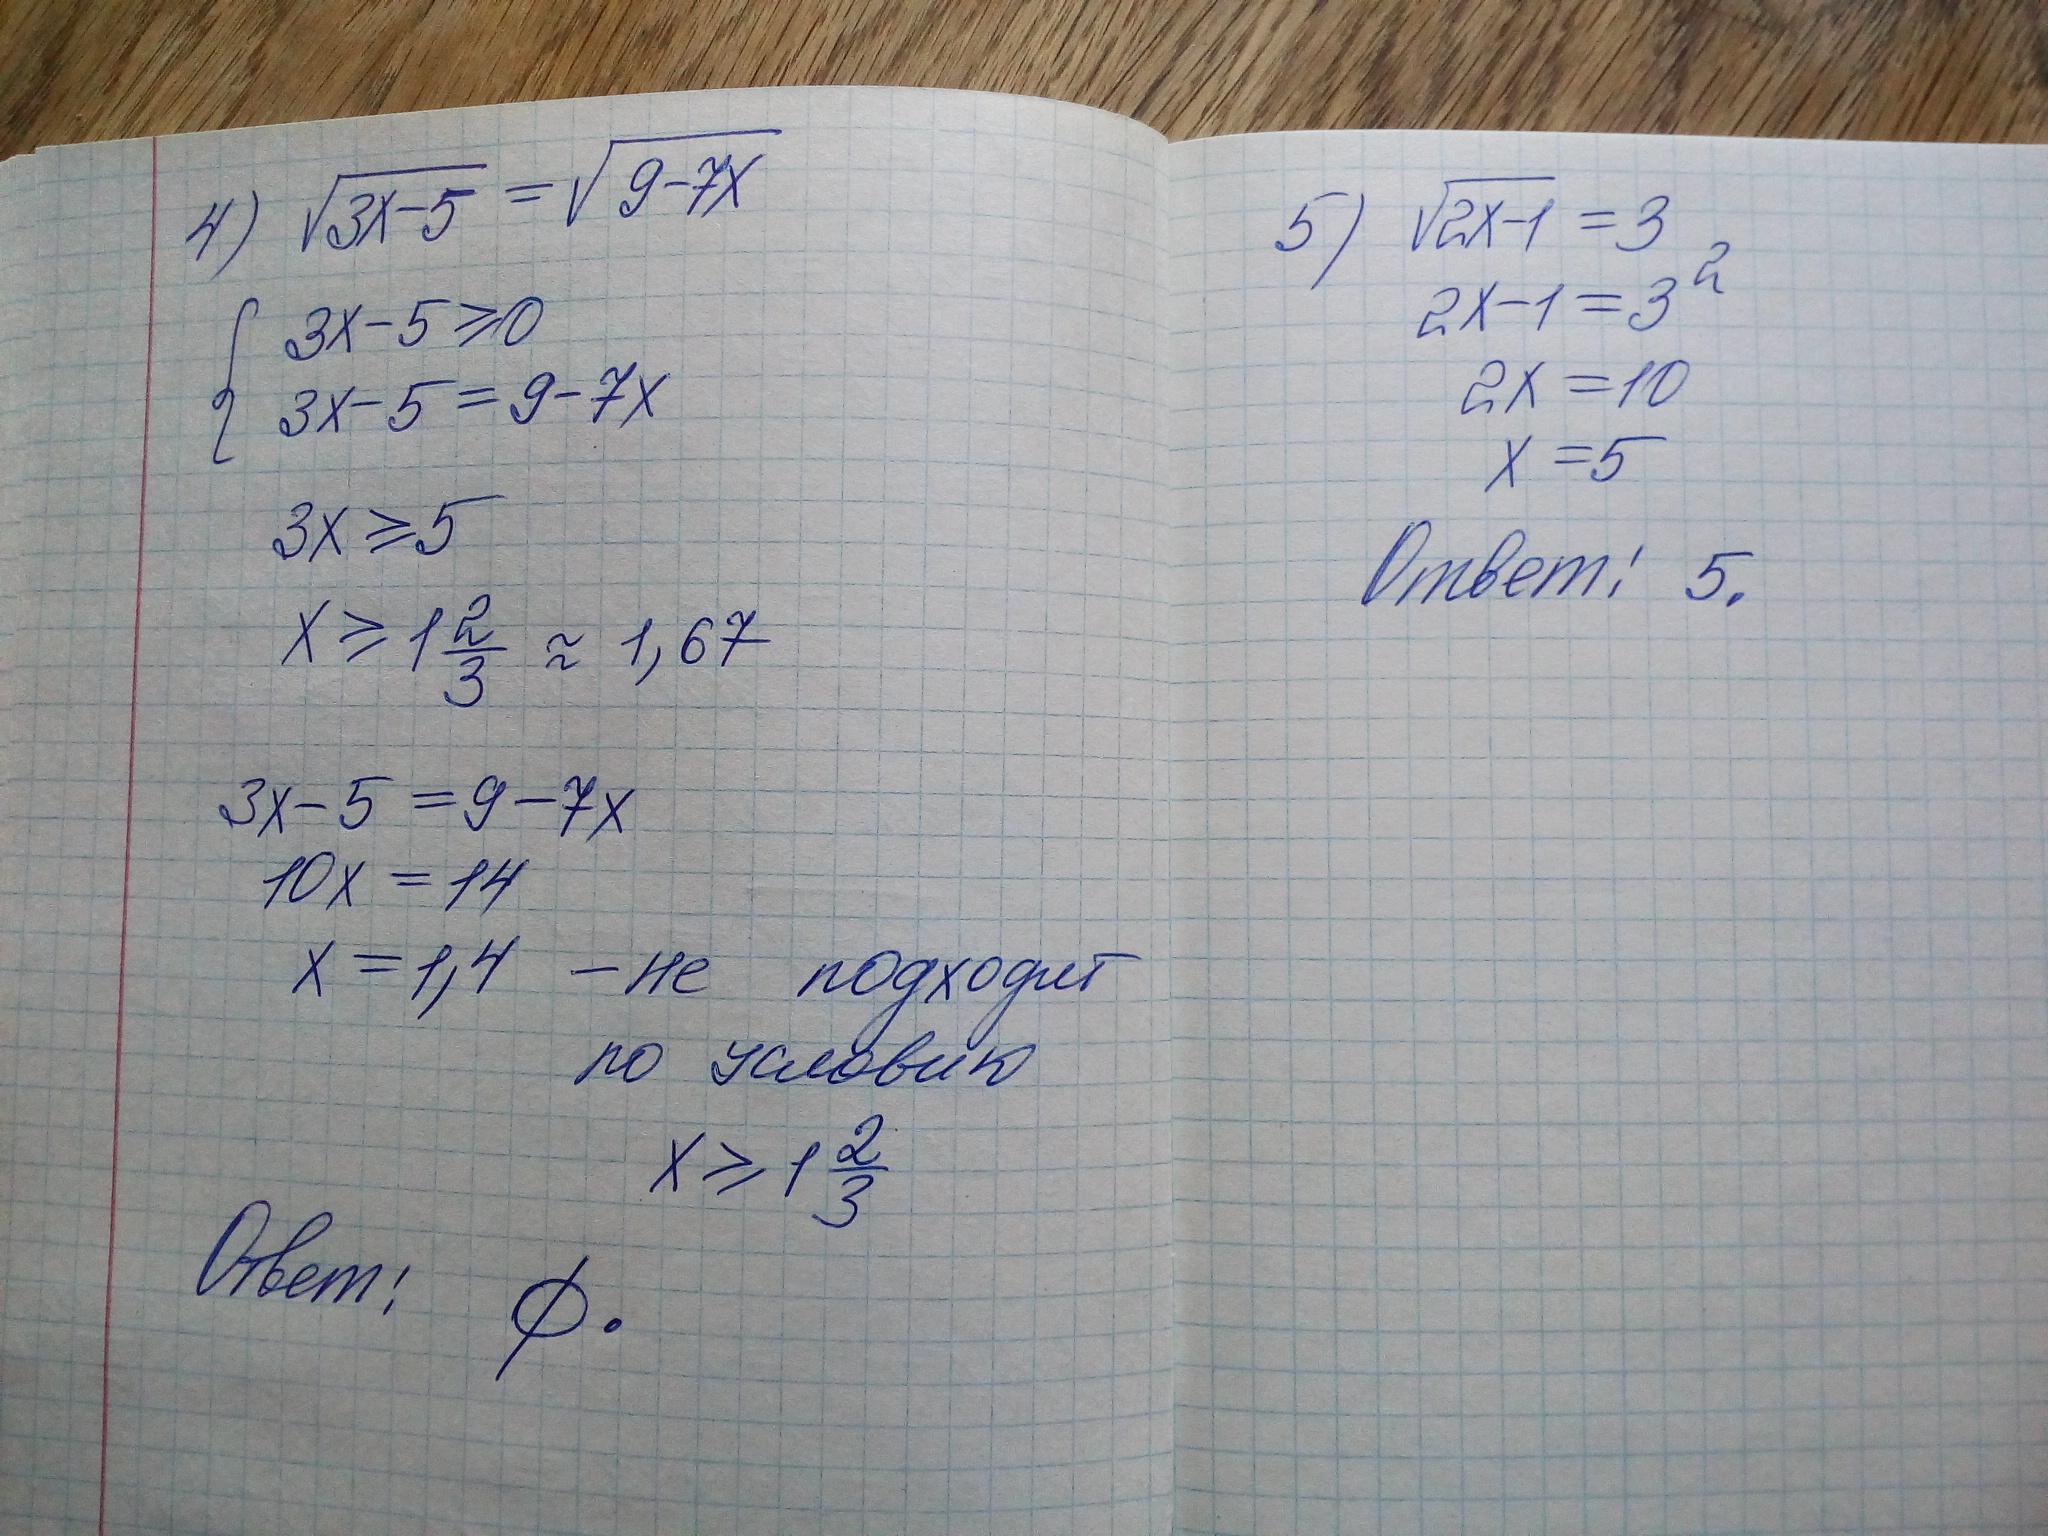 4) √3x-5 = √9-7x
{ 3x-5≥0
3x-5=9-7x
3x≥5
x≥1 2/3 ≈ 1,67
3x-5=9-7x
10x=14
x=1,4 - не подходит
по условию
x≥1 2/3
Ответ: ∅.
5) √2x-1 = 3
2x-1=3²
2x=10
x=5
Ответ: 5.